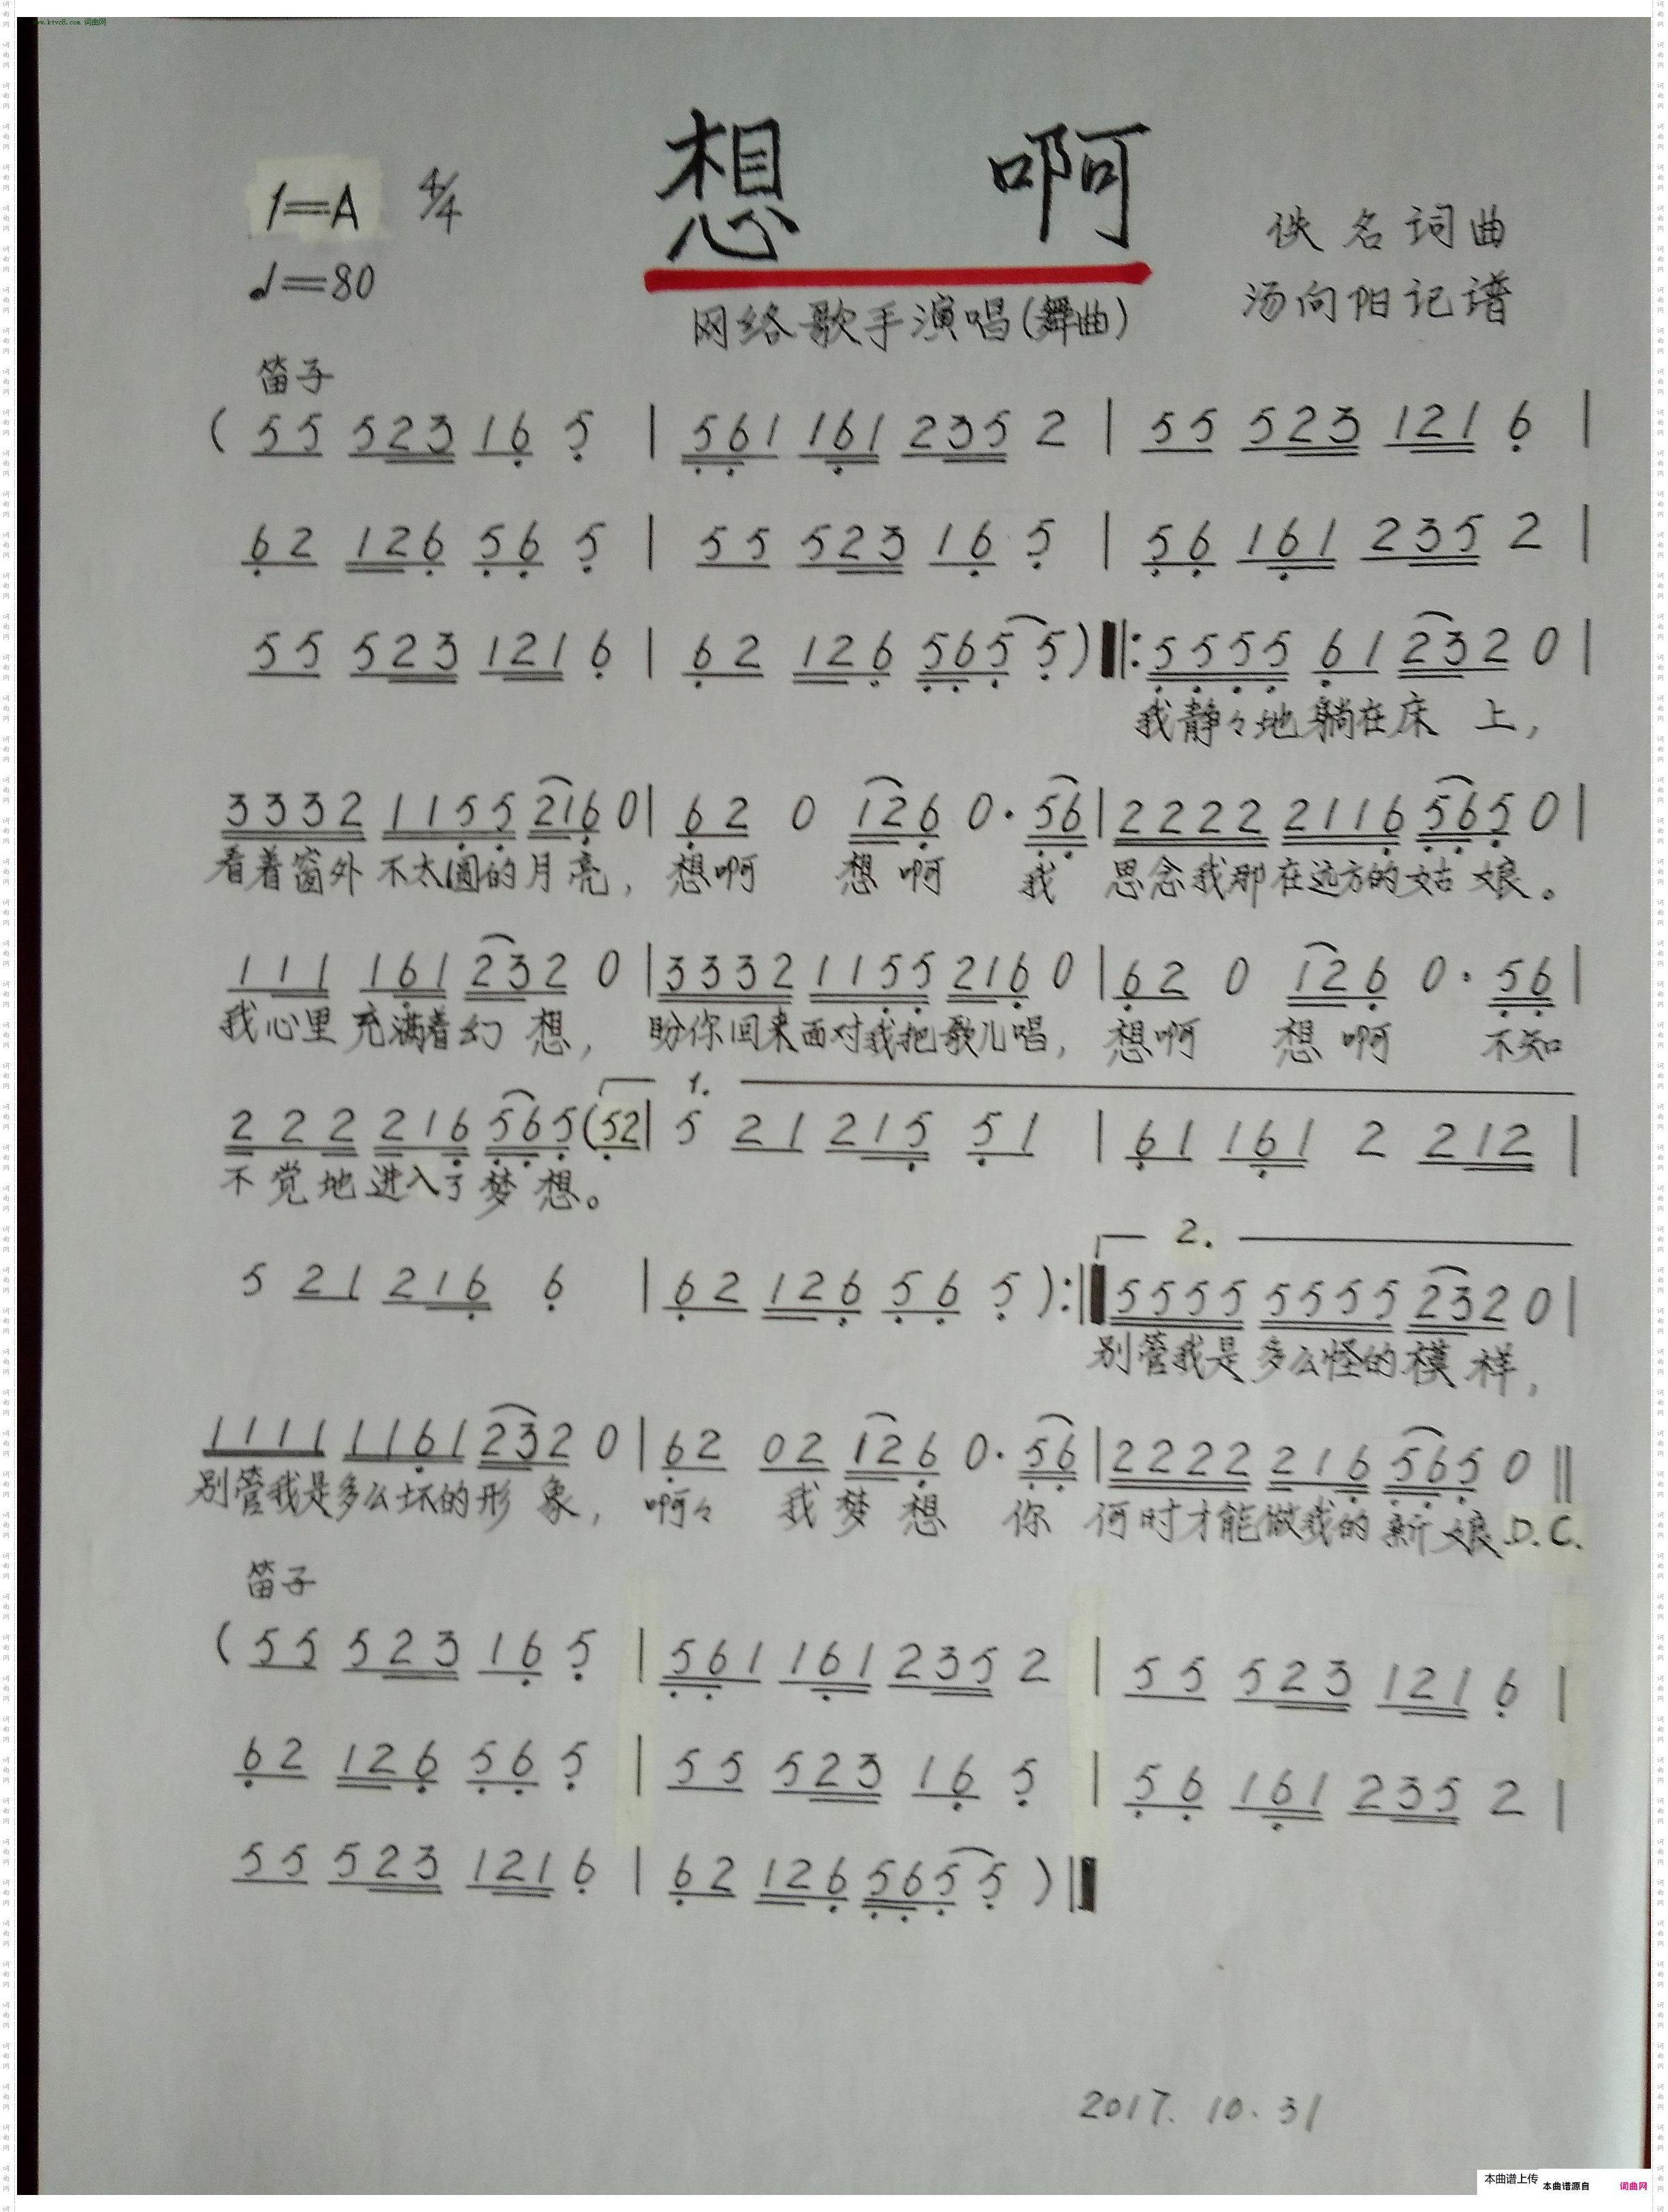 www.ktvc8.com 词曲网
想 啊
1=A 4/4
♩=80
佚名词曲
汤向阳记谱
网络歌手演唱(舞曲)
笛子
( 5 5 5 2 3 1 6 5 | 5 6 1 1 6 1 2 3 5 2 | 5 5 5 2 3 1 2 1 6 |
6 2 1 2 6 5 6 5 | 5 5 5 2 3 1 6 5 | 5 6 1 6 1 2 3 5 2 |
5 5 5 2 3 1 2 1 6 | 6 2 1 2 6 5 6 5 5 ) ‖: 5 5 5 5 6 1 2 3 2 0 |
我静々地躺在床 上,
3 3 3 2 1 1 5 5 2 1 6 0 | 6 2 0 1 2 6 0 · 5 6 | 2 2 2 2 2 1 1 6 5 6 5 0 |
看着窗外 不太圆的月亮, 想啊 想啊 我 思念我那在远方的姑娘。
1 1 1 1 6 1 2 3 2 0 | 3 3 3 2 1 1 5 5 2 1 6 0 | 6 2 0 1 2 6 0 · 5 6 |
我心里 充满着幻 想, 盼你回来面对我把歌儿唱, 想啊 想啊 不知
1.
2 2 2 2 1 6 5 6 5 ( 5 2 | 5 2 1 2 1 5 5 1 | 6 1 1 6 1 2 2 1 2 |
不觉地进入了梦想。
2.
5 2 1 2 1 6 6 | 6 2 1 2 6 5 6 5 ) :‖ 5 5 5 5 5 5 5 5 2 3 2 0 |
别管我是多么怪的模样,
1 1 1 1 1 1 6 1 2 3 2 0 | 6 2 0 2 1 2 6 0 · 5 6 | 2 2 2 2 2 1 6 5 6 5 0 ‖
别管我是多么坏的形 象, 啊々 我梦想 你 何时才能做我的新娘 D.C.
笛子
( 5 5 5 2 3 1 6 5 | 5 6 1 1 6 1 2 3 5 2 | 5 5 5 2 3 1 2 1 6 |
6 2 1 2 6 5 6 5 | 5 5 5 2 3 1 6 5 | 5 6 1 6 1 2 3 5 2 |
5 5 5 2 3 1 2 1 6 | 6 2 1 2 6 5 6 5 5 ) ‖
2017. 10. 31
本曲谱上传
本曲谱源自 词曲网